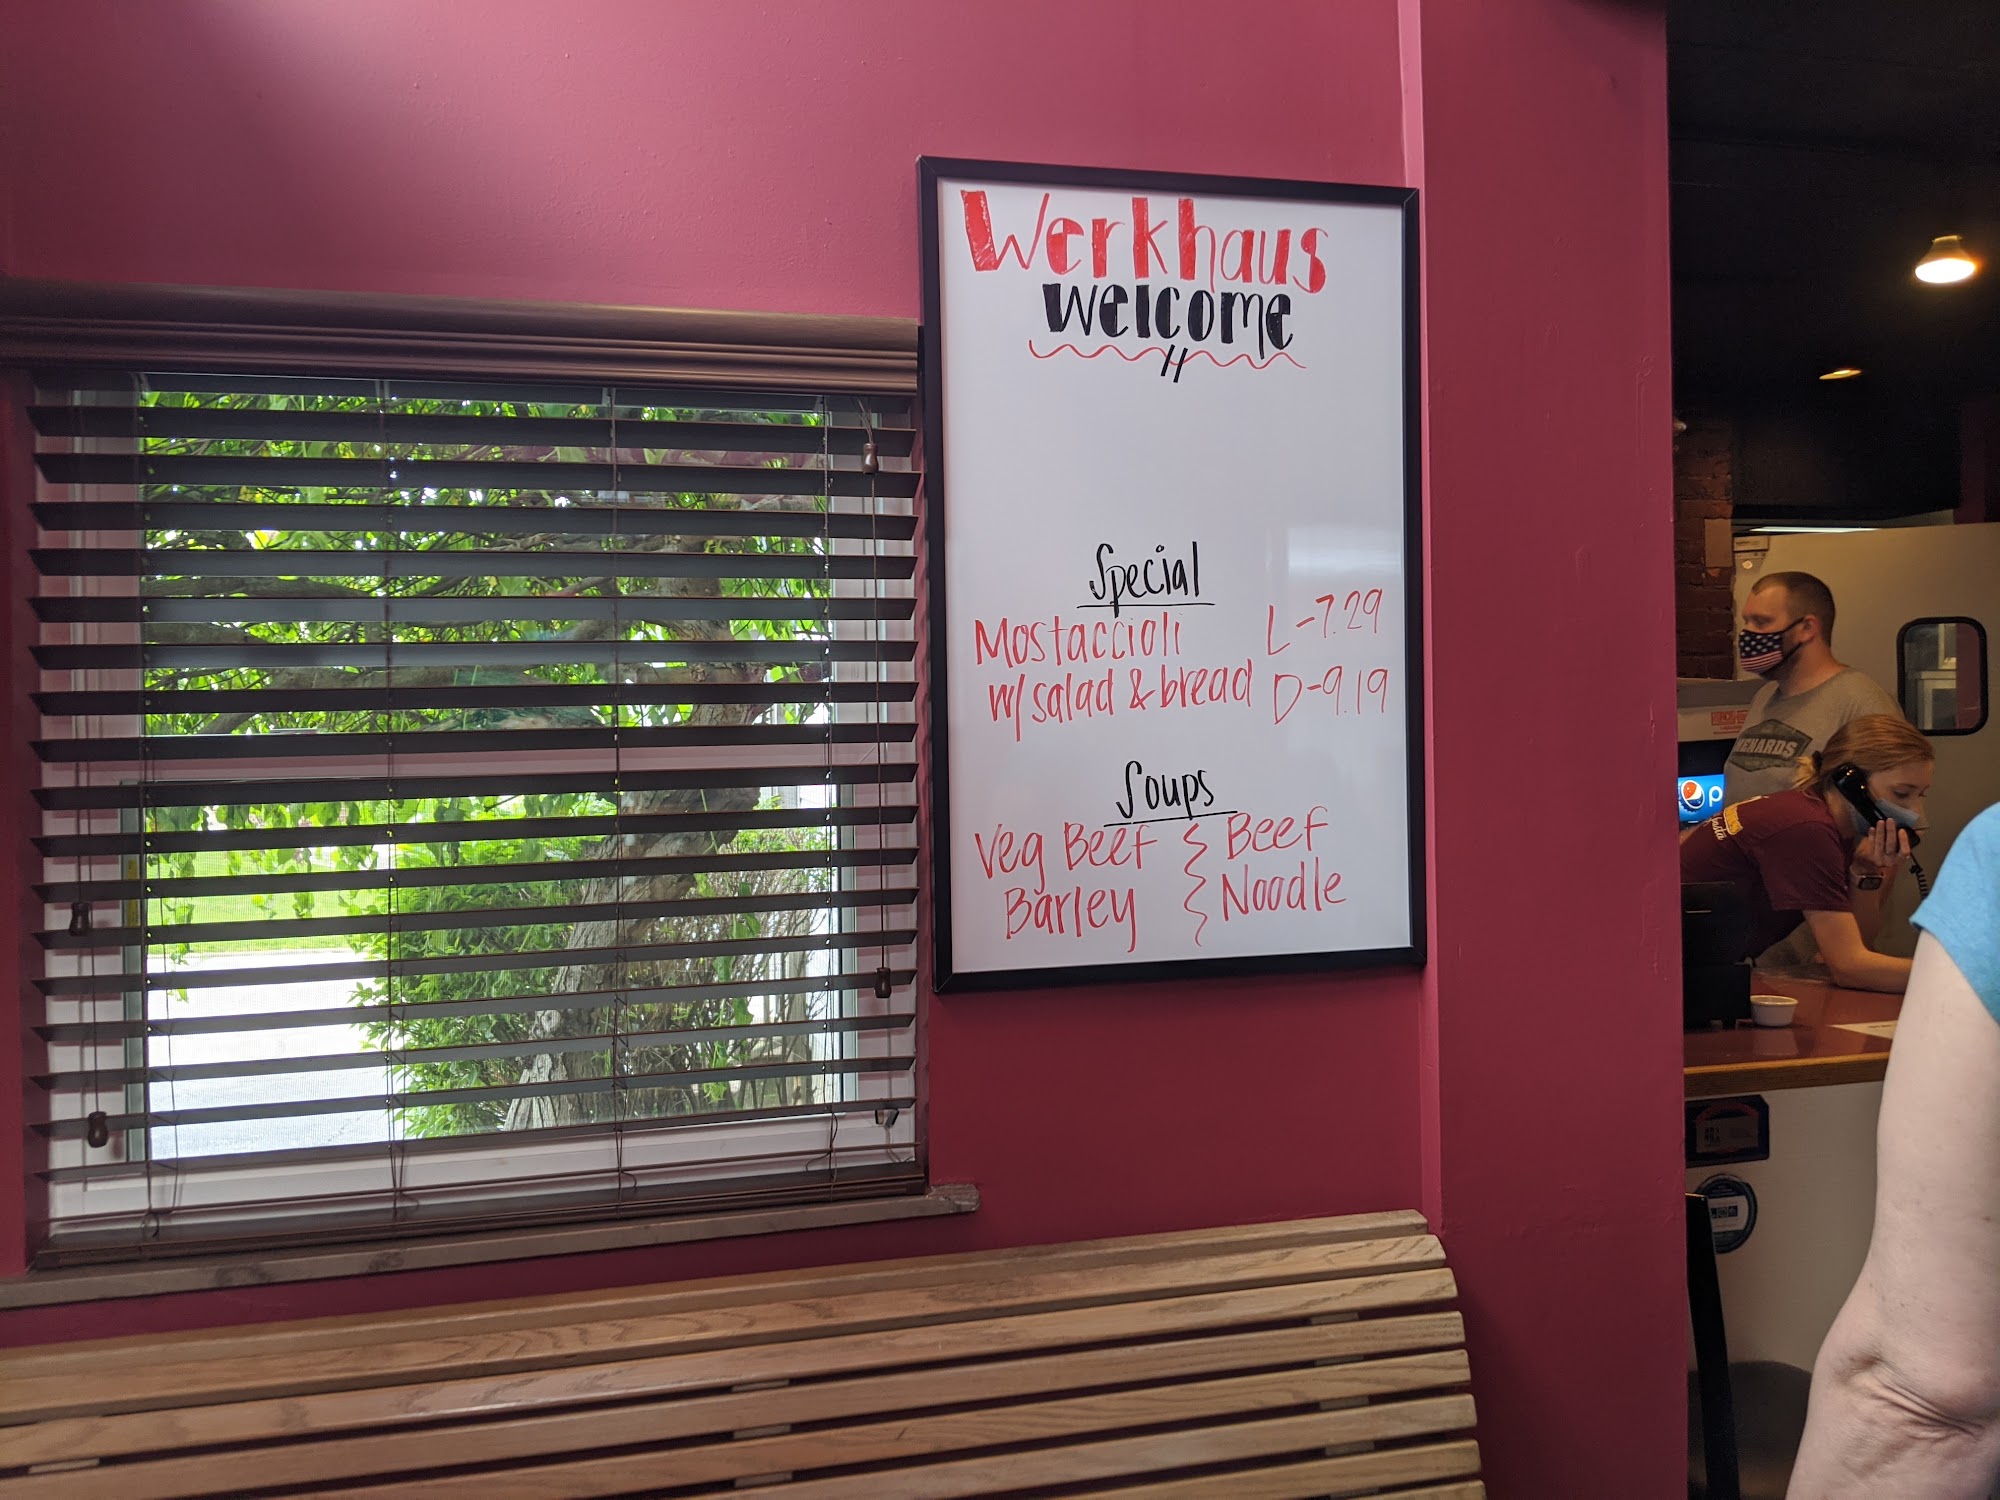 Werkhaus
welcome
Special
Mostaccioli L-7.29
w/salad & bread D-9.19
Soups
Veg Beef Beef
Barley Noodle